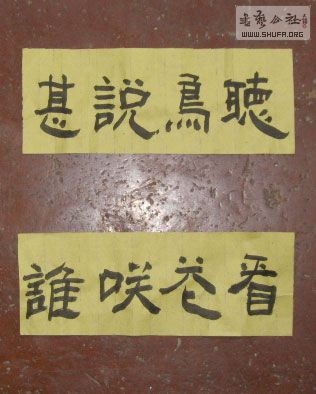 書藝公社
WWW.SHUFA.ORG
聴鳥説甚
看花咲誰